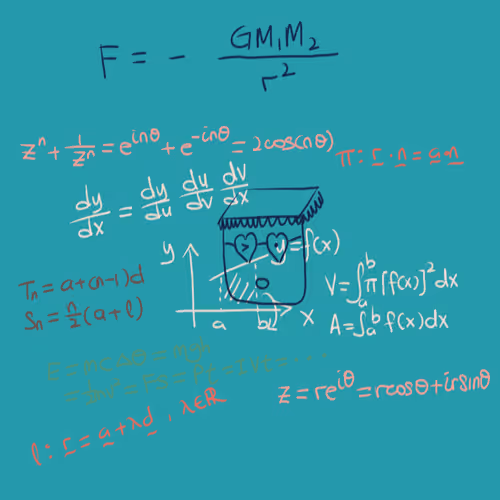 F = - GM₁M₂/r²
zⁿ + 1/zⁿ = e^inθ + e^-inθ = 2cos(nθ)
π : r · n = a · n
dy/dx = dy/du du/dv dv/dx
y
y=f(x)
Tₙ = a+(n-1)d
Sₙ = n/2(a+l)
V=∫ₐᵇ π[f(x)]²dx
A=∫ₐᵇ f(x)dx
a
b
x
z = re^iθ = rcosθ+irsinθ
l : r = a+λd , λ∈ℝ